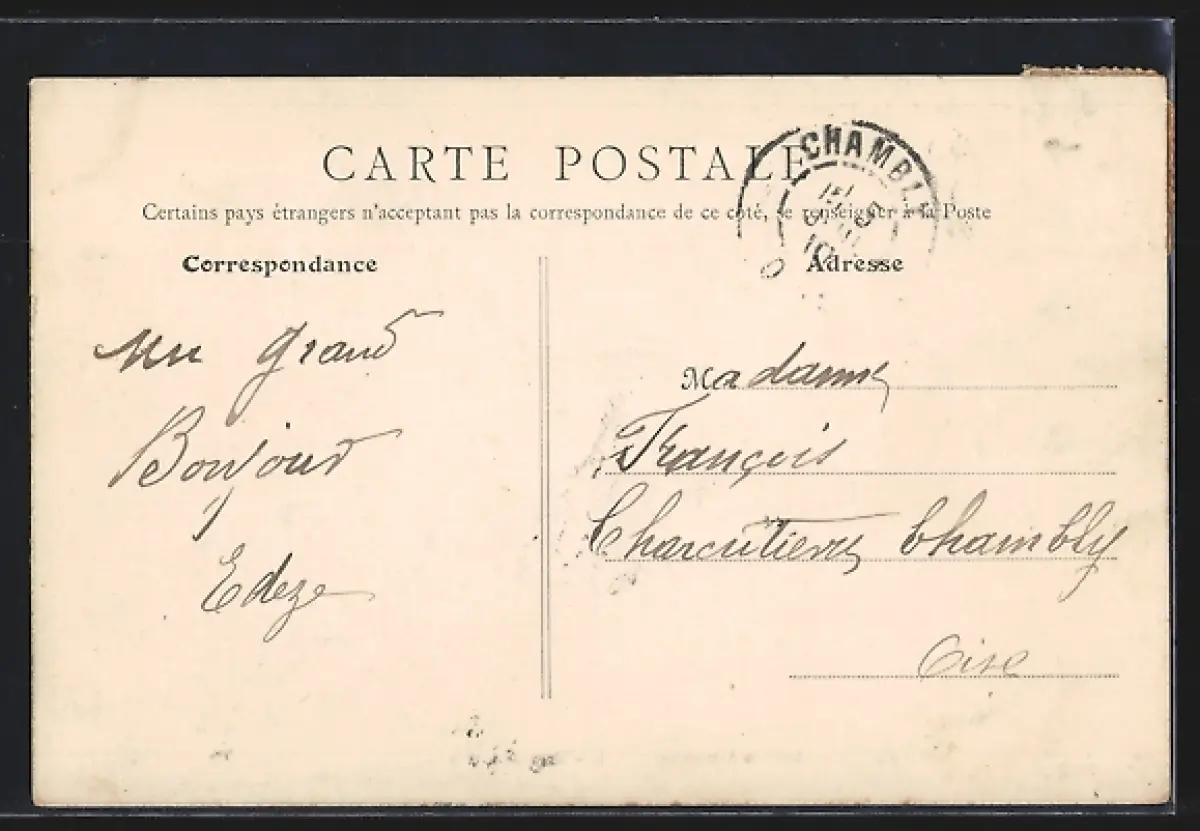 CARTE POSTALE
CHAMBLY
Certains pays étrangers n'acceptant pas la correspondance de ce côté, se renseigner à la Poste
Correspondance
Adresse
un grand
Bonjour
Edeze
Madame
François
Charcutière Chambly
Oise